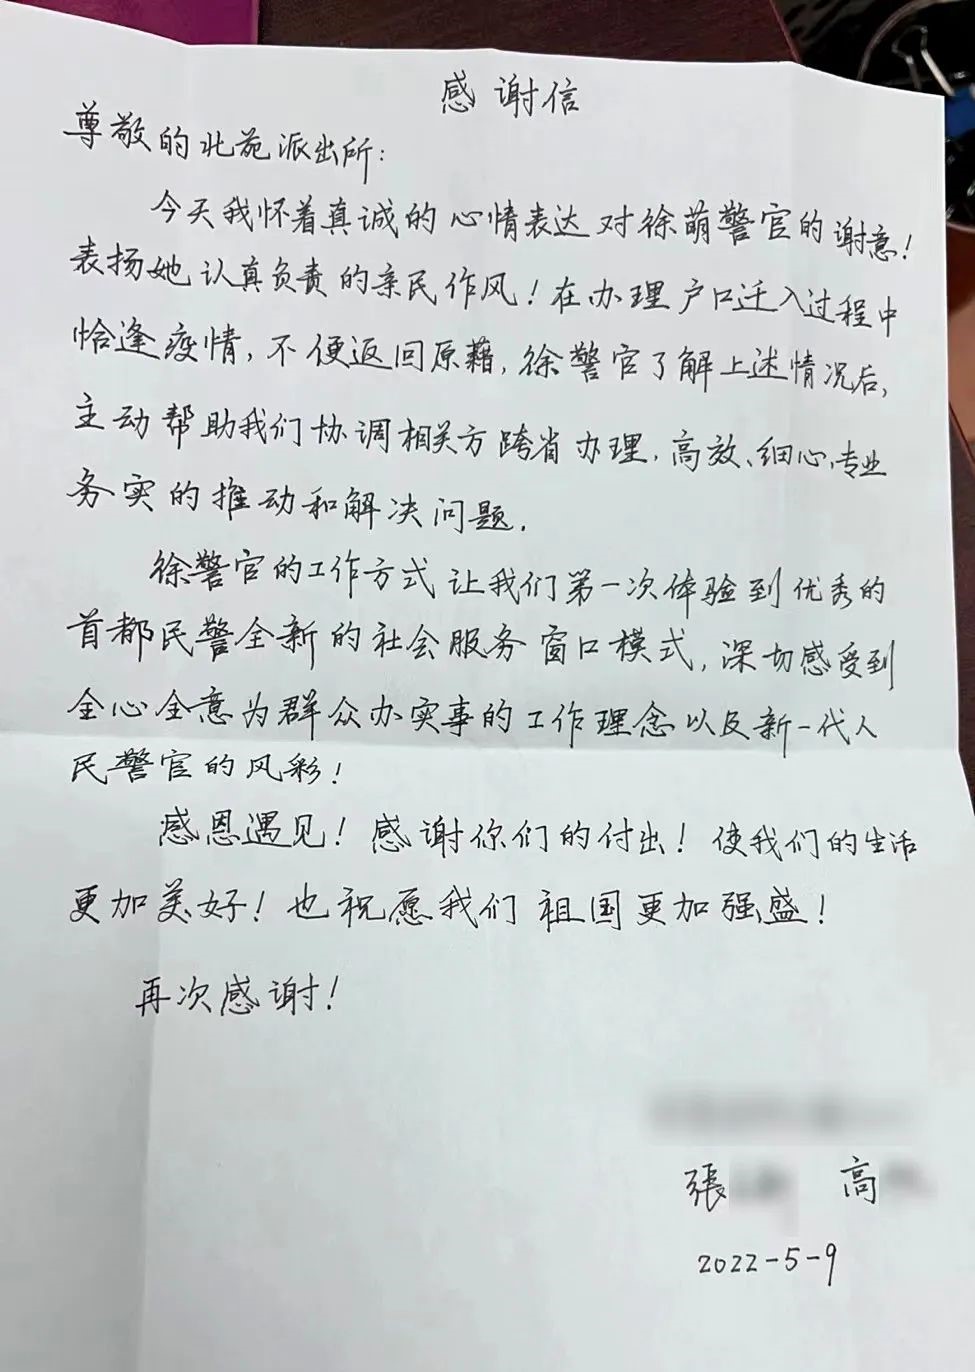 感谢信
尊敬的北苑派出所:
今天我怀着真诚的心情表达对徐萌警官的谢意!
表扬她认真负责的亲民作风!在办理户口迁入过程中
恰逢疫情,不便返回原藉,徐警官了解上述情况后,
主动帮助我们协调相关方跨省办理,高效、细心、专业
务实的推动和解决问题.
徐警官的工作方式让我们第一次体验到优秀的
首都民警全新的社会服务窗口模式,深切感受到
全心全意为群众办实事的工作理念以及新一代人
民警官的风彩!
感恩遇见!感谢你们的付出!使我们的生活
更加美好!也祝愿我们祖国更加强盛!
再次感谢!
張 高
2022-5-9